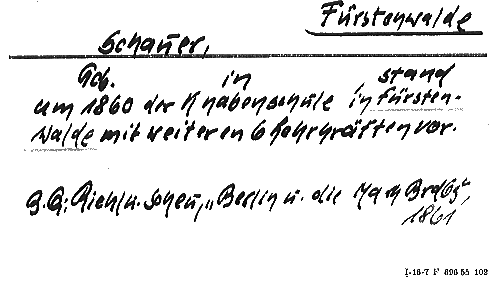 Fürstenwalde
Schauer,
Gch. in stand
um 1860 der Knabenschule in Fürsten-
walde mit weiteren 6 Lehrkräften vor.
B.Q: Riehl u. Scheu, "Berlin u. die Mark Brdbg",
1861
I-16-7 F 696 55 102